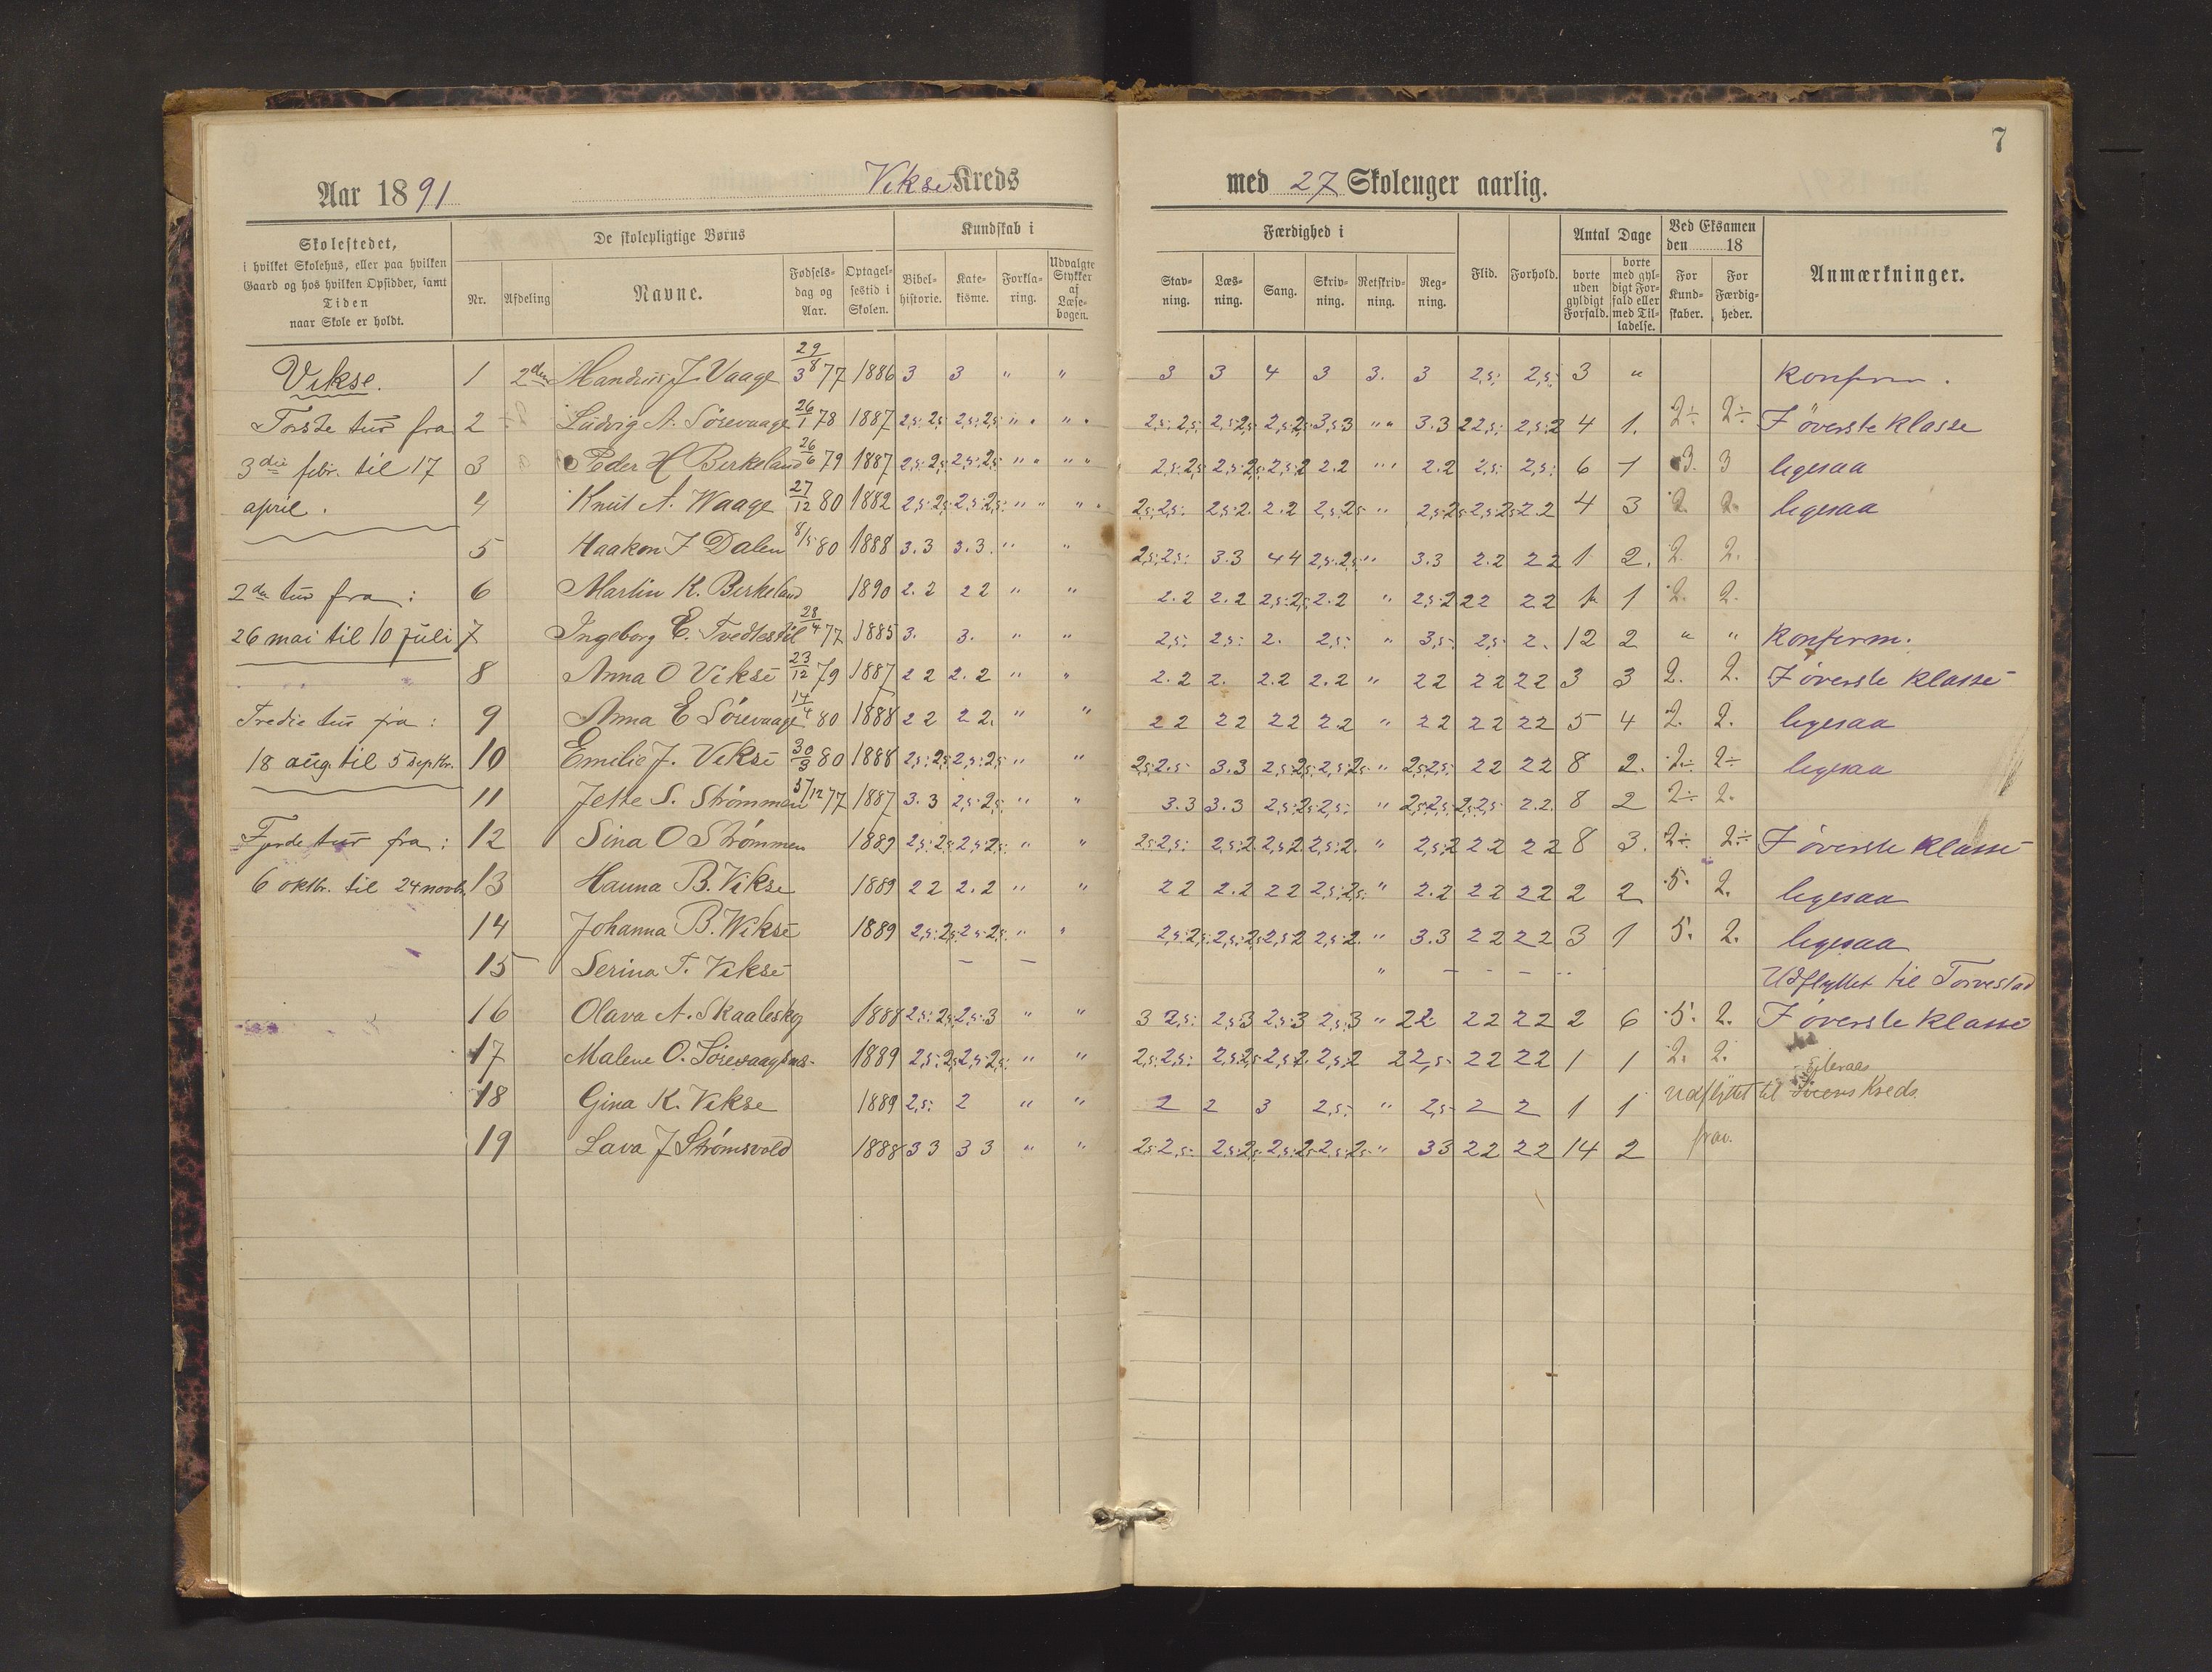 7
Aar 1891 Vikse Kreds med 27 Skoleuger aarlig.
Skolestedet, i hvilket Skolehus, eller paa hvilken Gaard og hos hvilken Opsidder, samt Tiden naar Skole er holdt.
De skolepligtige Børns
Nr. Afdeling Navne. Fødselsdag og Aar. Optagelsestid i Skolen.
Kundskab i
Bibelhistorie. Katekisme. Forklaring. Udvalgte Stykker af Læsebogen.
Færdighed i
Stavning. Læsning. Sang. Skrivning. Retskrivning. Regning.
Flid. Forhold.
Antal Dage
borte uden gyldigt Forfald. borte med gyldigt Forfald eller med Tilladelse.
Ved Eksamen den 18
For Kundskaber. For Færdigheder.
Anmærkninger.
Vikse.
Første tur fra
3die febr. til 17
april.
2den tur fra:
26 mai til 10 juli
Tredie tur fra:
18 aug. til 5 septbr.
Fjerde tur fra:
6 oktbr. til 24 novb.
1 2den Mandrus J. Vaage 29/8 77 1886 3 3 " " 3 3 4 3 3. 3 2,5: 2,5: 3 " konfirm.
2 Ludvig A. Sørevaage 26/1 78 1887 2,5: 2,5 2,5: 2,5 " " 2,5: 2,5: 2,5: 2,5 2,5: 2,5 3,5: 3 " 3.3 2 2,5: 2,5: 2 4 1. 2÷ 2÷ I øverste klasse
3 Peder H Birkeland 26/6 79 1887 2,5: 2,5 2,5: 2,5 " " 2,5: 2,5 2,5: 2,5 2,5: 2 2.2 " 2.2 2,5: 2,5: 6 1 3. 3 ligesaa
4 Knut A. Waage 27/12 80 1882 2,5: 2,5 2,5: 2,5: " " 2,5: 2,5: 2,5: 2. 2.2 2,5: 2,5 " 2,5: 2,5 2,5: 2,5 2.2 4 3 2. 2. ligesaa
5 Haakon J Dalen 8/5 80 1888 3.3 3.3. " " 2,5: 2,5: 3.3 4 4 2,5: 2,5: " 3.3 2.2 2 2 1 2. 2. 2.
6 Martin K. Birkeland 1890 2.2 2 2 " " 2.2 2.2 2,5: 2,5 2.2 " 2,5: 2 2 2 2 2 1 1 2. 2.
7 Ingeborg E. Tvedtestil 28/4 77 1885 3. 3. " " 2,5: 2,5: 2. 2,5: " 3,5: 2,5: 2. 12 2 " " konfirm.
8 Anna O Vikse 23/12 79 1887 2 2 2.2 " " 2.2 2. 2.2 2.2 " 2 2 2 2 2 2 3 3 2. 2. I øverste klasse
9 Anna E Sørevaage 14/4 80 1888 2 2 2 2. " " 2 2 2 2 2 2 2 2 " 2 2 2 2 2 2 5 4 2. 2. ligesaa
10 Emilie J. Vikse 30/3 80 1888 2,5: 2,5 2,5: 2,5 " " 2,5: 2,5 3.3 2,5: 2,5: 2,5: 2,5 " 2,5: 2,5: 2 2 2 2 8 2. 2÷ 2÷ ligesaa
11 Jette S. Strømmen 5/12 77 1887 3.3 2,5: 2,5: " " 3.3 3.3 2,5: 2,5: 2,5: " 2,5: 2,5: 2,5: 2,5: 2.2. 8 2 2÷ 2.
12 Sina O Strømmen 1889 2,5: 2,5 2,5: 2,5: " " 2,5: 2,5: 2,5: 2 2,5: 2 2,5: 2. " 2,5: 2 2 2 2 2 8 3. 2÷ 2÷ I øverste klasse
13 Hanna B. Vikse 1889 2 2 2.2 " " 2 2 2.2 2 2 2,5: 2,5: " 2.2 2 2 2 2 2 2 5. 2. ligesaa
14 Johanna B. Wikse 1889 2,5: 2,5 2,5: 2,5: " " 2,5: 2,5: 2,5: 2,5 2,5: 2 2,5: 2. " 3.3 2 2 2 2 3 1 5. 2. ligesaa
15 Serina T. Vikse – – " – – – Udflyttet til Torvestad
16 Olava A. Skaaleskog 1888 2,5: 2,5 2,5: 3 " " 3 2,5: 2,5: 3 2,5: 3 2,5: 3 " 2 2 2 2 2 2 2 6 5. 2. I øverste klasse
17 Malene O. Sørevaag 1889 2,5: 2,5 2,5: 2,5: " " 2,5: 2,5: 2,5: 2,5 2,5: 2. 2,5: 2 2 2,5: 2 2 2 2 1 1 2. 2.
18 Gina K. Vikse 1889 2,5: 2 " " 2 2 3 2,5: " 2,5: 2 2 1 1 Udflyttet til Eileraas Kreds.
19 Lava J Strømsvold 1888 3 3 3 3 " " 2,5: 2,5: 2,5: 2,5: 2,5: 2,5: 2,5: 2,5: " 3 3 2 2 2 2 14 2 frav.